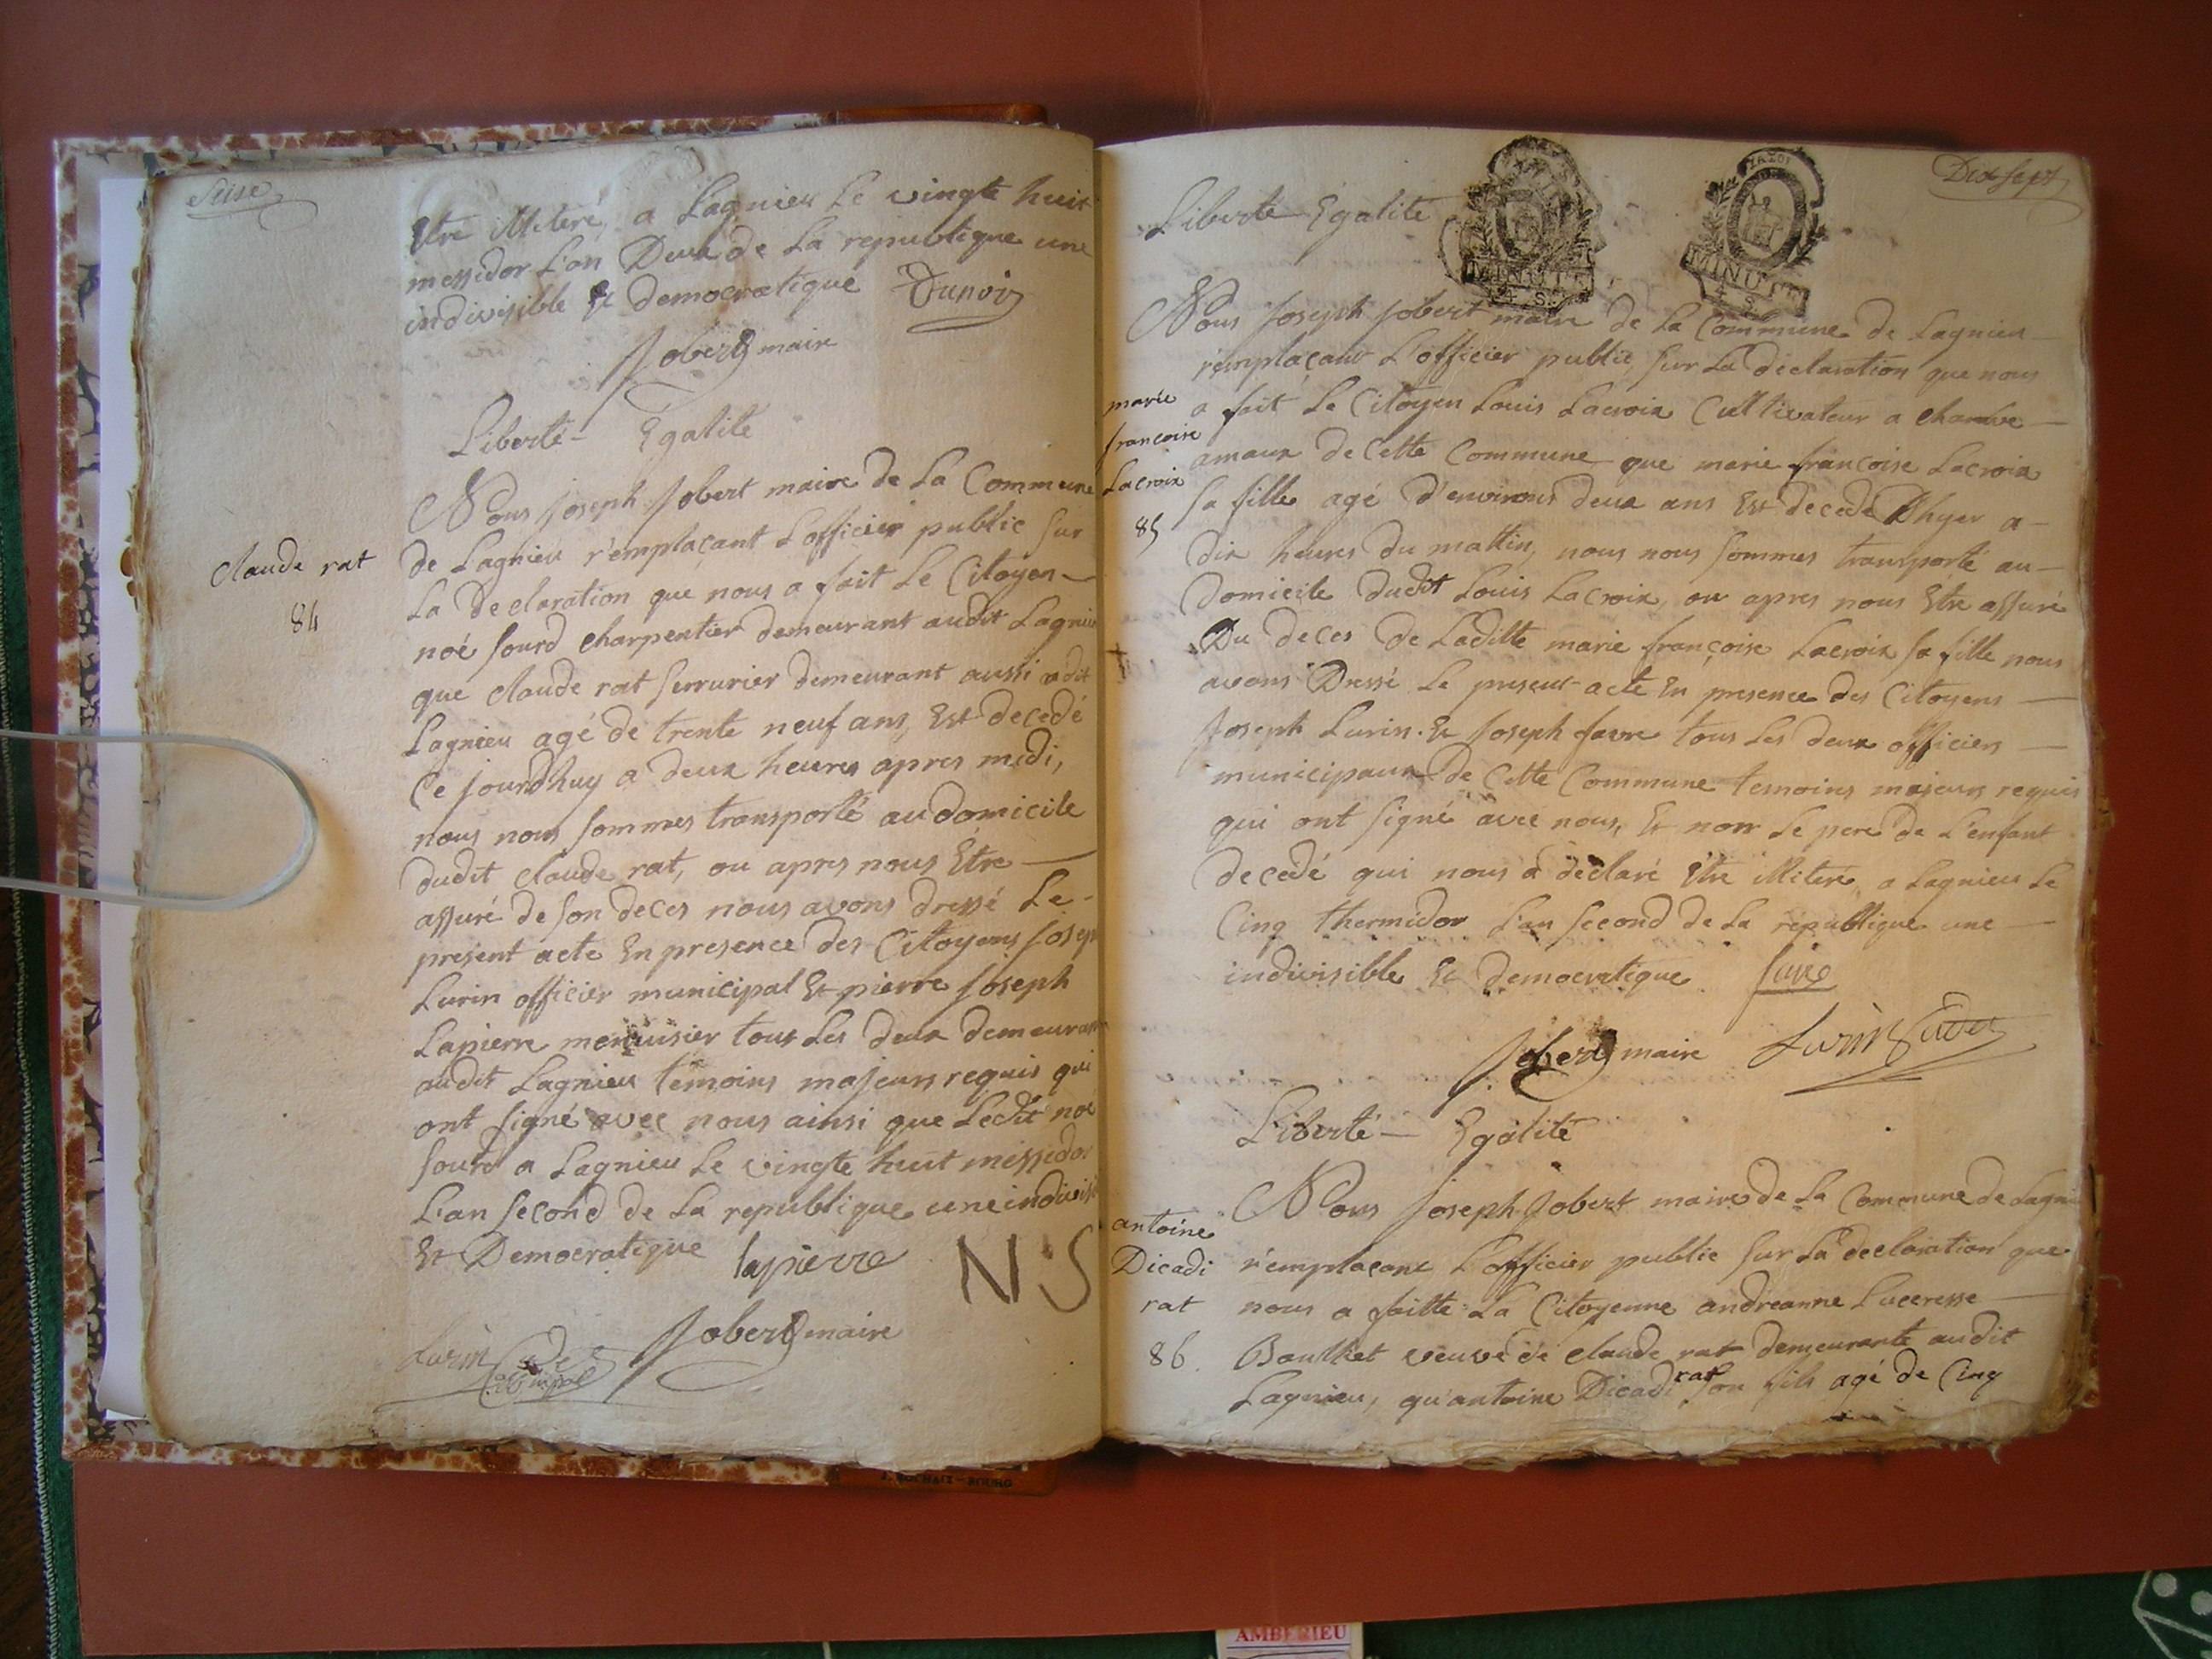 Seise
Etre illiteré, a Lagnieu Le vingte huit
messidor L'an Deux de La republique une
indivisible Et Democratique Dunoir
Jobert maire
Liberté - Egalité
Nous joseph Jobert maire de La Commune
de Lagnieu r'emplacant Lofficier public sur
La Declaration que nous a fait Le Citoyen
claude rat
84
noé sourd charpentier demeurant audit Lagnieu
que claude rat serrurier demeurant aussi adit
Lagnieu agé de trente neuf ans, Est decedé
Ce jourdhuy a deux heures apres midi,
nous nous sommes transporté au domicile
dudit claude rat, ou apres nous Etre
assuré de son deces nous avons dressé Le
present acte En presence des Citoyens Joseph
Lurin officier municipal Et pierre Joseph
Lapierre menuisier tous Les deux demeurant
audit Lagnieu temoins majeurs requis qui
ont signé avec nous ainsi que Ledit noé
sourd a Lagnieu Le vingte huit messidor
L'an second de La republique une indivisi
Et Democratique lapierre NS
Lurin Jobert maire
Dix sept
Liberté Egalité
MINUTE
4 S.
MINUTE
4 S.
Nous Joseph Jobert maire de La Commune de Lagnieu
r'emplaçant L'officier public, sur La declaration que nous
marie
francoise
Lacroix
85
a fait Le Citoyen Louis Lacroix Cultivateur a charve
amaux de Cette Commune que marie francoise Lacroix
sa fille agé d'environs deux ans Est decedé Dhyer a
dix heures du mattin, nous nous sommes transporté au
Domicile dudit Louis Lacroix, ou apres nous Etre assuré
Du deces de Laditte marie françoise Lacroix sa fille nous
avons Dressé Le present acte En presence des Citoyens
Joseph Lurin Et Joseph favre tous Les deux officiers
municipaux de Cette Commune temoins majeurs requis
qui ont signé avec nous, Et non Le pere de L'enfant
decedé qui nous a déclaré Etre illiteré, a Lagnieu Le
Cinq thermidor L'an second de La republique une
indivisible Et democratique
Jobert maire Lurin
Liberté - Egalité
Nous Joseph Jobert maire de La Commune de Lagni
antoine
Dicadi
rat
86.
r'emplacant Lofficier public sur La declaration que
nous a faitte La Citoyenne andreanne Luceresse
Baulliet veuve de claude rat demeurante audit
Lagnieu, qu'antoine Dicadi rat son fils agé de Cinq
AMBERIEU